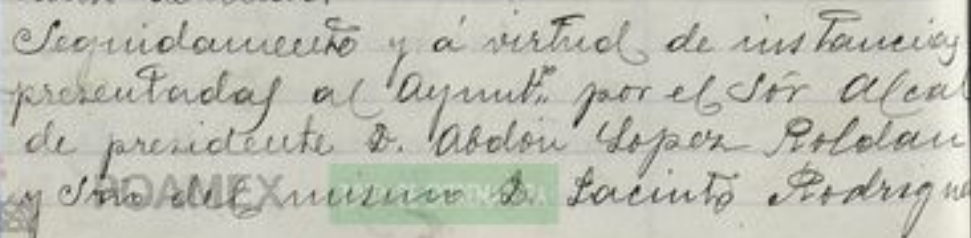 Seguidamente y á virtud de instancias
presentadas al Aynutº por el Sór Alcal
de presidente D. Abdón Lopez Roldan
y Srio del mismo D. Jacinto Rodrigue